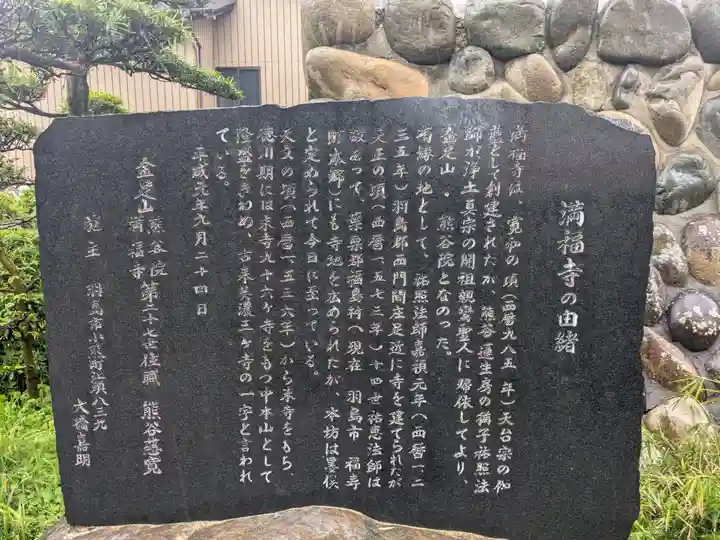 満福寺の由緒
満福寺は、寛和の頃(西暦九八五年)天台宗の伽
藍として創建されたが、熊谷蓮生房の稱子祐照法
師が浄土真宗の開祖親鸞聖人に帰依してより、
金足山・熊谷院となのった。
有縁の地として、祐照法師嘉禎元年(西暦一、二
三五年)羽島郡西門間庄足近に寺を建てられたが
天正の頃(西暦一五七三年)十四世祐恵法師は
故あって、葉栗郡福島村(現在 羽島市 福寿
町本郷)にも寺地を広められたが、本坊は墨俣
と定められて今日に至っている。
天文の頃(西暦一五三六年)から末寺をもち、
徳川期には末寺九十六ヶ寺をもつ中本山として
隆盛をきわめ、古来美濃三ヶ寺の一字と言われ
ている。
平成元年九月二十四日
金足山 熊谷院 満福寺 第二十七世住職 熊谷慈寛
施主 羽島市小熊町江頭八三九
大橋嘉明